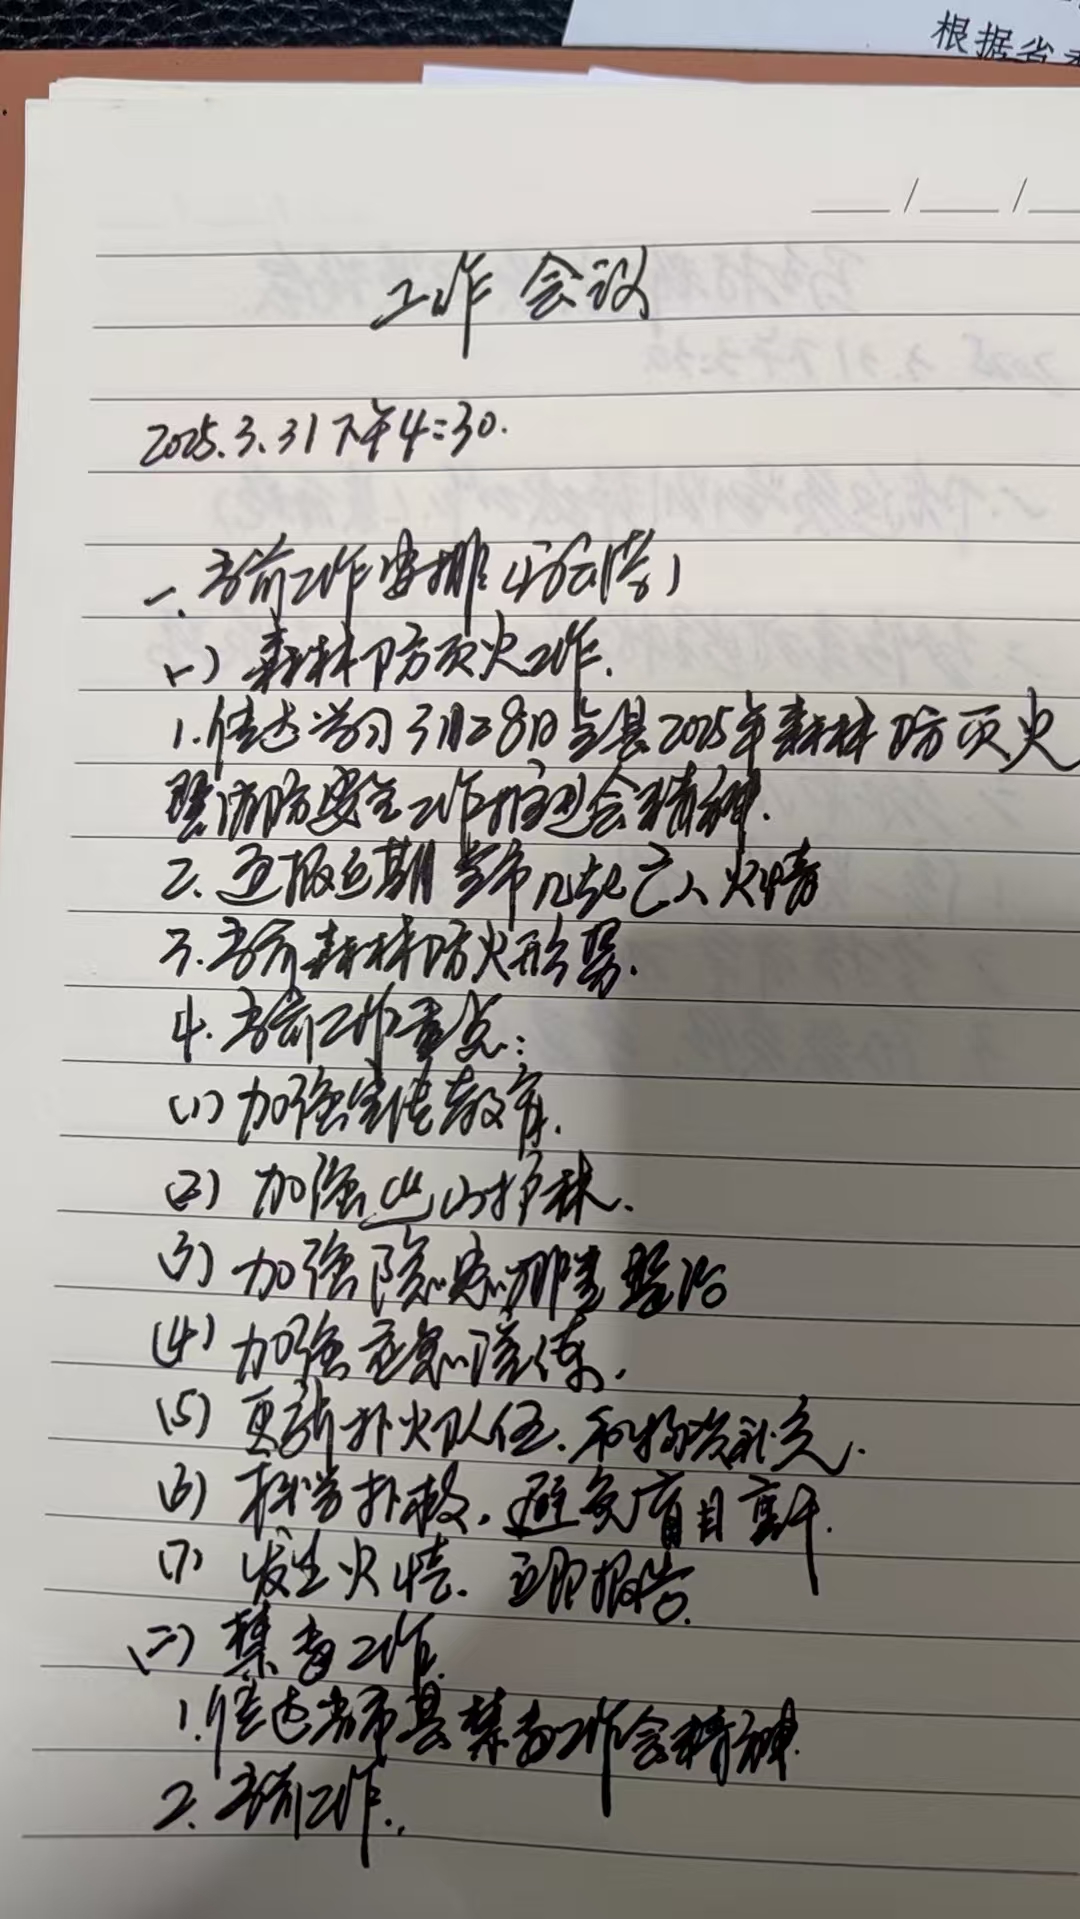 根据省
工作会议
2025.3.31下午4:30.
一、当前工作安排
(一)森林防灭火工作.
1.传达学习3月28日全县2025年森林防灭火
暨消防安全工作推进会精神.
2.通报近期 市几起亡人火情
3.当前森林防火形势.
4.当前工作重点:
(1)加强宣传教育.
(2)加强巡山护林.
(3)加强隐患排查整治
(4)加强应急演练.
(5)更新扑火队伍.和物资补充.
(6)科学扑救.避免盲目蛮干.
(7)发生火情.立即报告.
(二)禁毒工作.
1.传达省市县禁毒工作会精神.
2.当前工作.